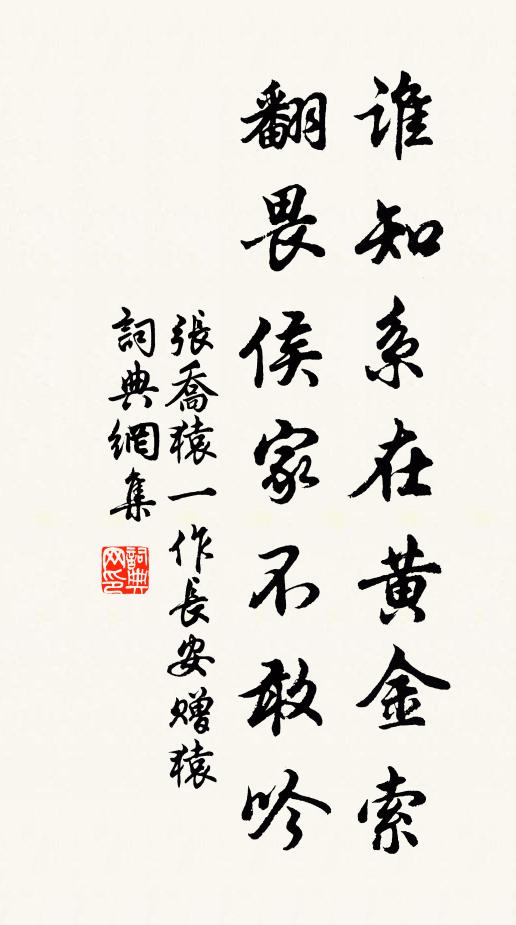 誰知系在黃金索
翻畏侯家不敢吟
張喬猿一作長安贈猿
詞典網集
詞典
网印